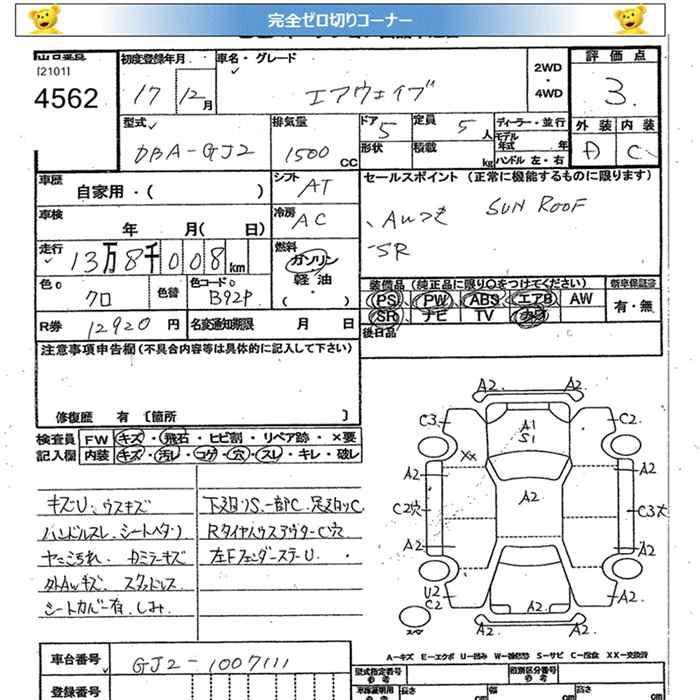 完全ゼロ切りコーナー
[2101]
4562
初度登録年月
17 12月
車名・グレード
エアウェイブ
2WD
・
4WD
評価点
3.
外装 内装
A C
型式
DBA-GJ2
排気量
1500 CC
ドア 5
形状
定員 5 人
積載 kg
ディーラー・並行
モデル年式 年
ハンドル 左・右
車歴
自家用・( )
シフト AT
車検
年 月( 日)
冷房 AC
走行
13万8千008km
燃料
ガソリン
軽油
( ・ )
セールスポイント (正常に機能するものに限ります)
、AWつき SUN ROOF
・SR
色
クロ
色替
色コード
B92P
装備品(純正品に限り○をつけてください)
PS PW ABS エアB AW
SR ナビ TV カワ
新車保証書
有・無
後日品
R券 12920 円
名変通知期限 月 日
注意事項申告欄(不具合内容等は具体的に記入して下さい)
修復歴 有 〔箇所 〕
検査員 FW キズ・飛石・ヒビ割・リペア跡・×要
記入欄 内装 キズ・汚レ・コゲ・穴・スレ・キレ・破レ
キズU、ウスキズ
ハンドルスレ、シートヘタリ
ヤニ汚れ、カミラーキズ
外AWキズ スタッドレス
シートカバー有、しみ
下廻りS、一部C、足廻りC
RタイヤハウスアウターC穴
左FフェンダーステーU
A2. A2.
C3. A1 S1 C2.
XX
A2 A2 A2
C2穴 C3大
A2 A2
U2 C2 A2 A2.
A2. A2.
スペア
A-キズ E-エクボ U-凹み W-波(凹凸) S-サビ C-腐食 XX-交換済
車台番号 GJ2-1007111
登録番号
型式指定番号 参考
類別区分番号 参考
長さ cm 幅 cm 高さ cm